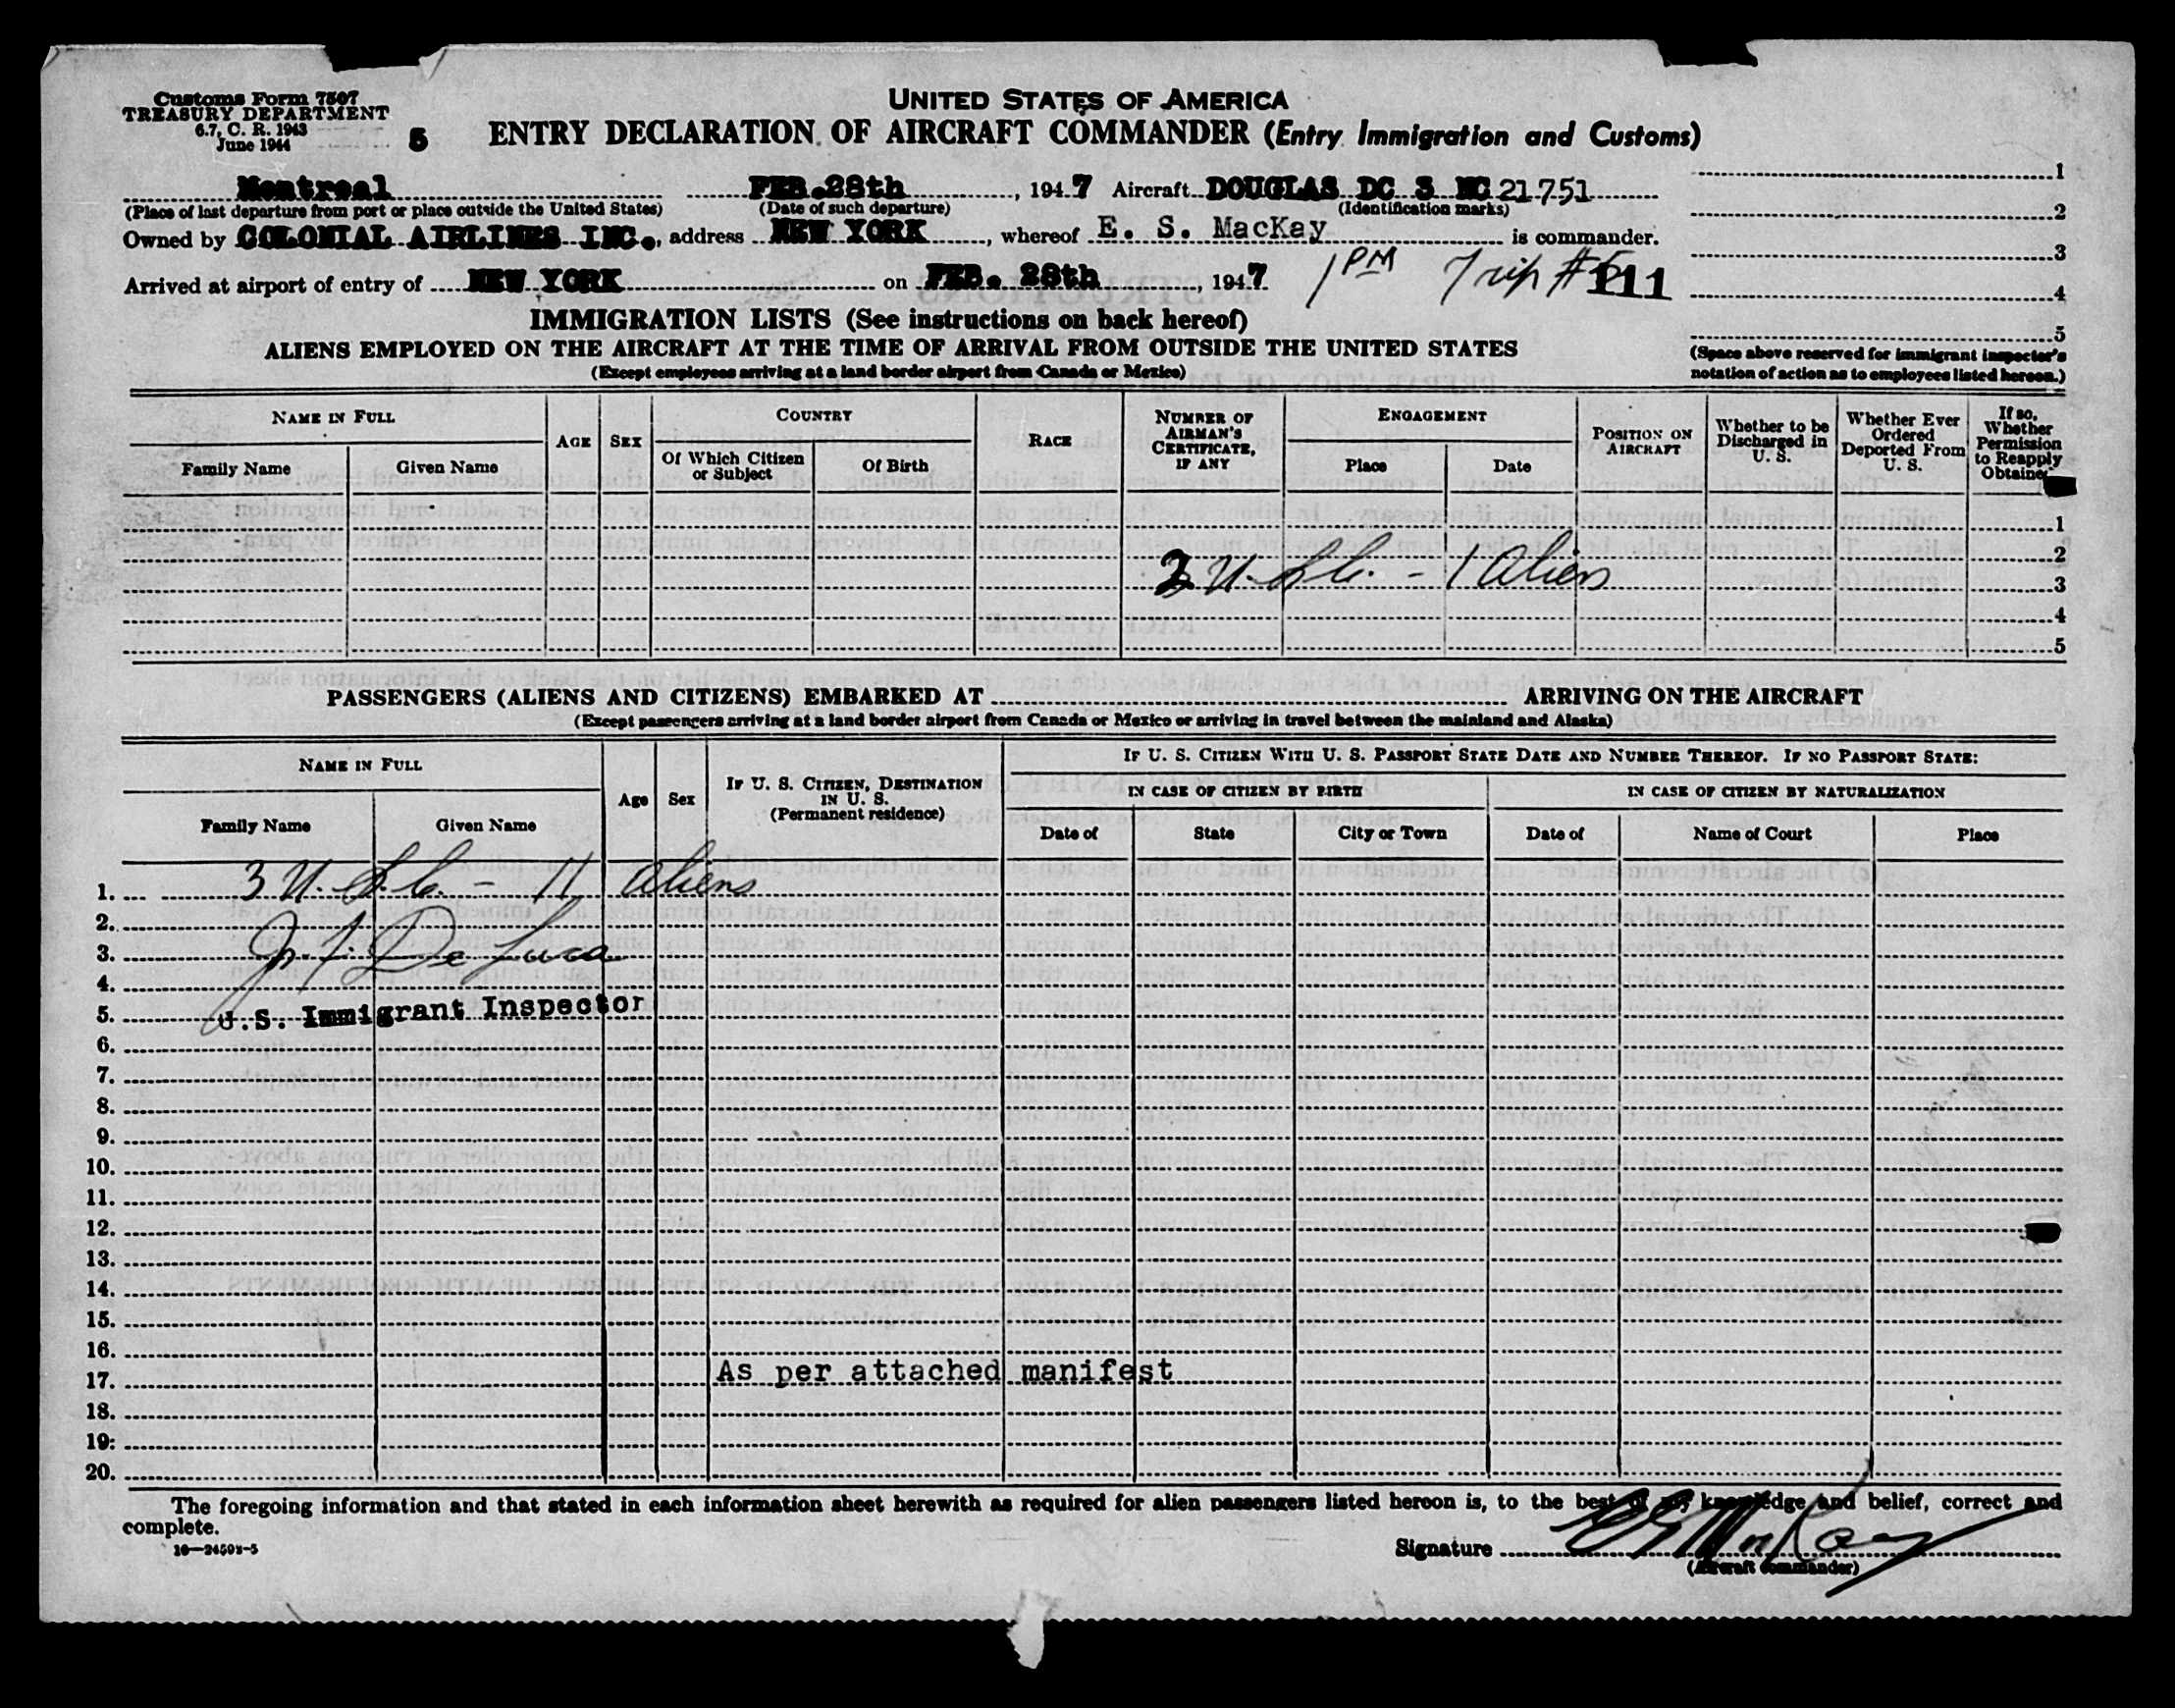 Customs Form 7507
TREASURY DEPARTMENT
6.7, C. R. 1943
June 1944
5
UNITED STATES OF AMERICA
ENTRY DECLARATION OF AIRCRAFT COMMANDER (Entry Immigration and Customs)
Montreal FEB.28th, 1947 Aircraft DOUGLAS DC 3 NC 21751
(Place of last departure from port or place outside the United States) (Date of such departure) (Identification marks)
Owned by COLONIAL AIRLINES INC., address NEW YORK, whereof E. S. MacKay is commander.
Arrived at airport of entry of NEW YORK on FEB. 28th, 1947 1 PM Trip # 111
1
2
3
4
5
(Space above reserved for immigrant inspector's
notation of action as to employees listed hereon.)
IMMIGRATION LISTS (See instructions on back hereof)
ALIENS EMPLOYED ON THE AIRCRAFT AT THE TIME OF ARRIVAL FROM OUTSIDE THE UNITED STATES
(Except employees arriving at a land border airport from Canada or Mexico)
NAME IN FULL
Family Name
Given Name
AGE
SEX
COUNTRY
Of Which Citizen or Subject
Of Birth
RACE
NUMBER OF AIRMAN'S CERTIFICATE, IF ANY
ENGAGEMENT
Place
Date
POSITION ON AIRCRAFT
Whether to be Discharged in U. S.
Whether Ever Ordered Deported From U. S.
If so, Whether Permission to Reapply Obtained
1
2
U.S.C. - 1 Alien
3
4
5
PASSENGERS (ALIENS AND CITIZENS) EMBARKED AT ARRIVING ON THE AIRCRAFT
(Except passengers arriving at a land border airport from Canada or Mexico or arriving in travel between the mainland and Alaska)
NAME IN FULL
Family Name
Given Name
Age
Sex
IF U. S. CITIZEN, DESTINATION IN U. S.
(Permanent residence)
IF U. S. CITIZEN WITH U. S. PASSPORT STATE DATE AND NUMBER THEREOF. IF NO PASSPORT STATE:
IN CASE OF CITIZEN BY BIRTH
Date of
State
City or Town
IN CASE OF CITIZEN BY NATURALIZATION
Date of
Name of Court
Place
1. 3 U.S.C. - 11 aliens
2.
3. De Luca
4.
5. U.S. Immigrant Inspector
6.
7.
8.
9.
10.
11.
12.
13.
14.
15.
16.
17. As per attached manifest
18.
19.
20.
The foregoing information and that stated in each information sheet herewith as required for alien passengers listed hereon is, to the best of my knowledge and belief, correct and
complete.
Signature E S MacKay
(Aircraft commander)